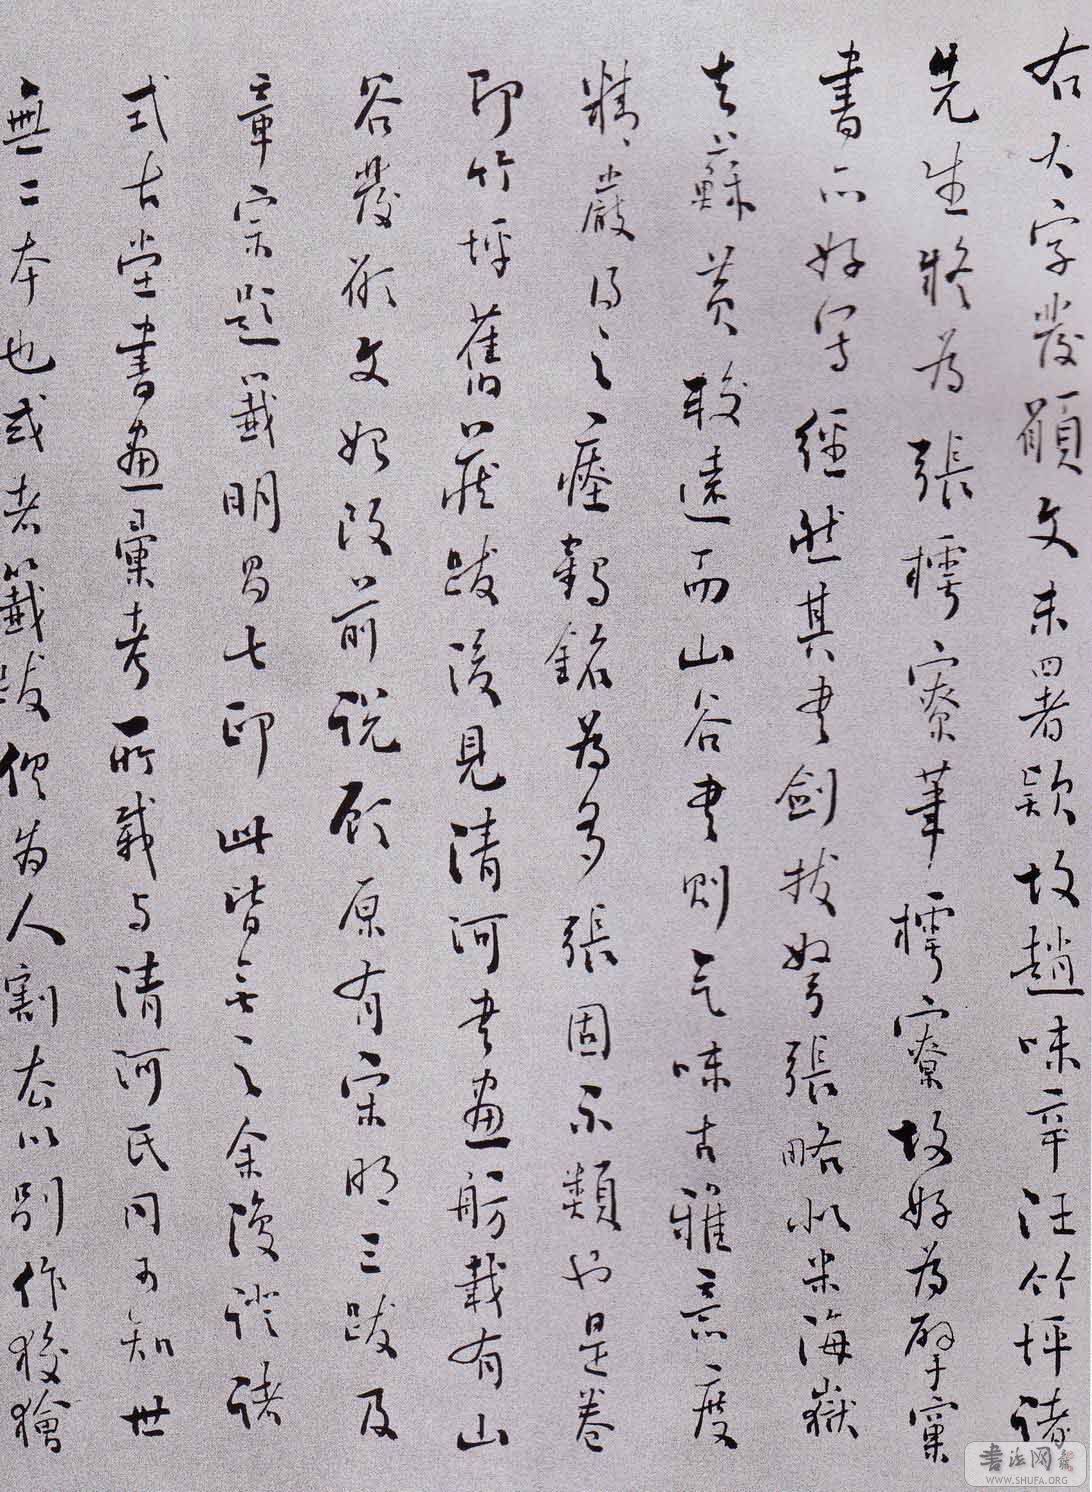 右大字發願文未署款故趙味辛汪竹坪諸
先生將為張樗寮筆樗寮故好為擘窠
書亦好寫經然其書劍拔弩張略似米海嶽
去蘇黃較遠而山谷書則气味古雅意度
精嚴得之瘞鶴銘為多張固不類也是卷
即竹坪舊藏跋後見清河書畫舫載有山
谷發願文始改前說顧原有宋明三跋及
章宗題籤明昌七印此皆無之余復證諸
式古堂書畫彙考所載与清河氏同可知世
無二本也或者籤跋俱为人割去以別作狡獪
書法网
WWW.SHUFA.ORG